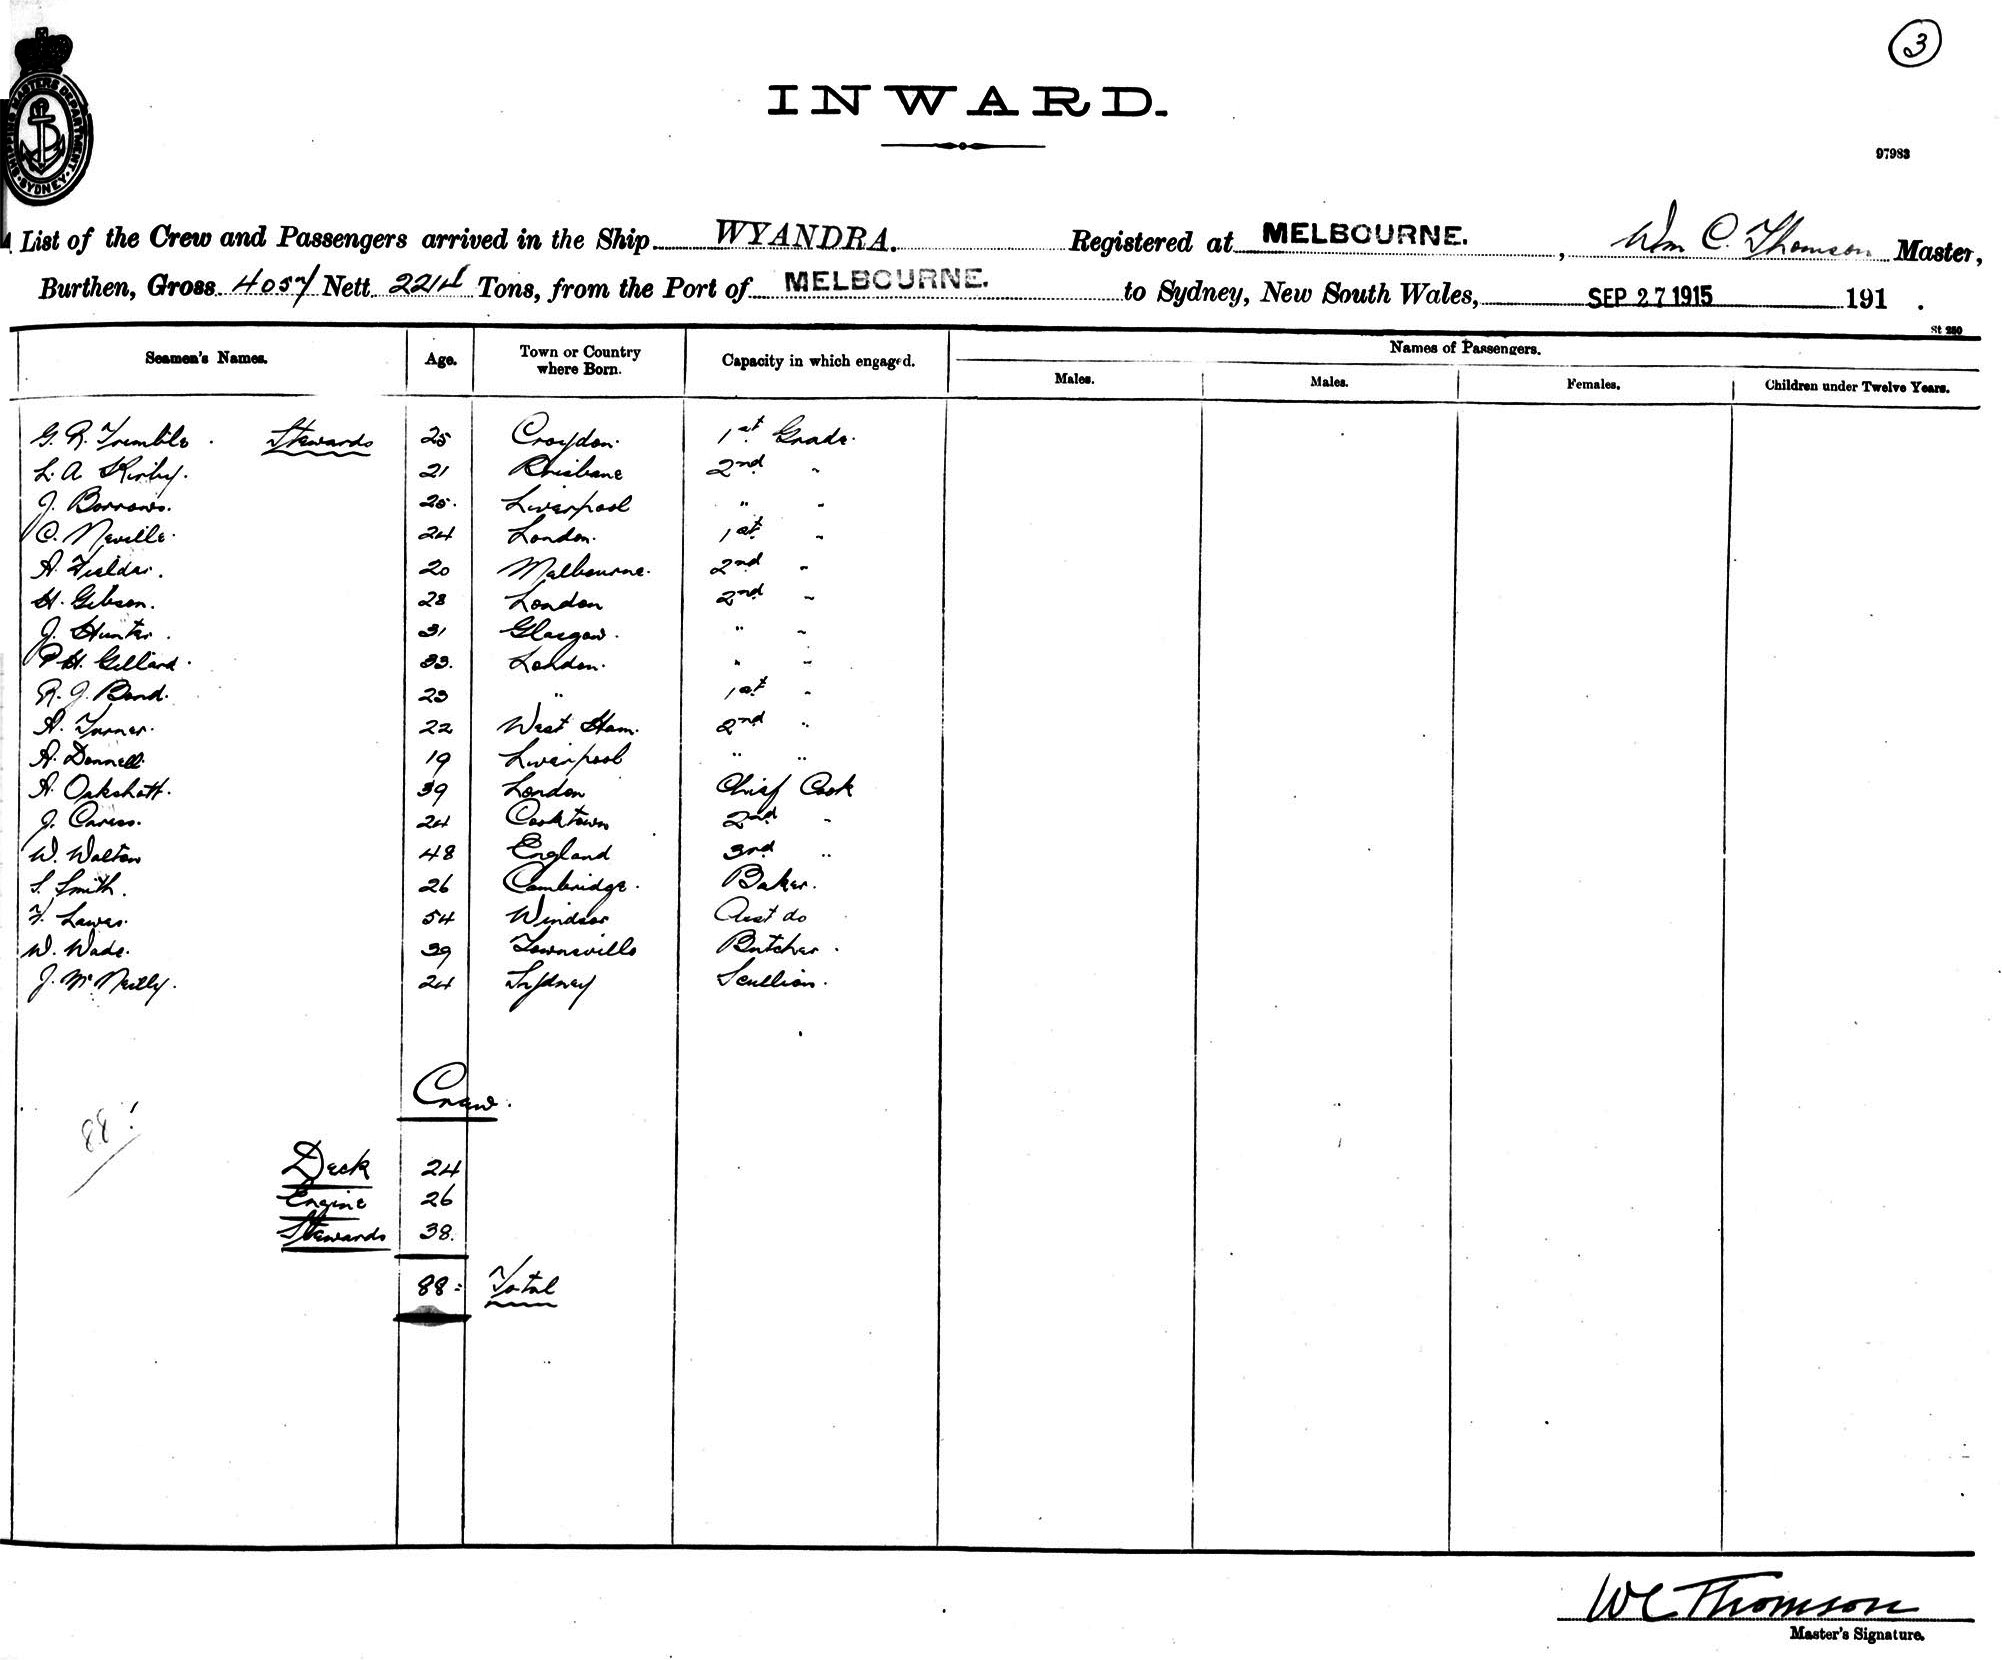 3
INWARD.
97983
SHIPPING MASTERS DEPARTMENT · SYDNEY ·
List of the Crew and Passengers arrived in the Ship WYANDRA. Registered at MELBOURNE. , Wm C. Thomson Master,
Burthen, Gross 4057 Nett 2214 Tons, from the Port of MELBOURNE. to Sydney, New South Wales, SEP 27 1915 191 .
St 280
Seamen's Names. Age. Town or Country where Born. Capacity in which engaged. Names of Passengers.
Males. Males. Females. Children under Twelve Years.
G. R. Tremble. Stewards 25 Croydon. 1st Grade.
L. A. Kirby. 21 Brisbane 2nd "
J. Borrows. 25. Liverpool " "
C. Neville. 24 London. 1st "
A. Fielder. 20 Melbourne. 2nd "
H. Gibson. 28 London 2nd "
J. Hunter. 31 Glasgow. " "
P H. Gillard. 33. London. " "
R. J. Bond. 23 " 1st "
A. Turner. 22 West Ham. 2nd "
A. Donnell. 19 Liverpool " "
A. Oakshott. 39 London Chief Cook
J. Caress. 24 Cooktown 2nd "
W. Walton 48 England 3rd "
S. Smith. 26 Cambridge. Baker.
F. Lawes. 54 Windsor Asst do
W. Wade. 39 Townsville Butcher.
J. McNeilly. 24 Sydney Scullion.
Crew.
88
Deck 24
Engine 26
Stewards 38.
88 = Total
WC Thomson
Master's Signature.